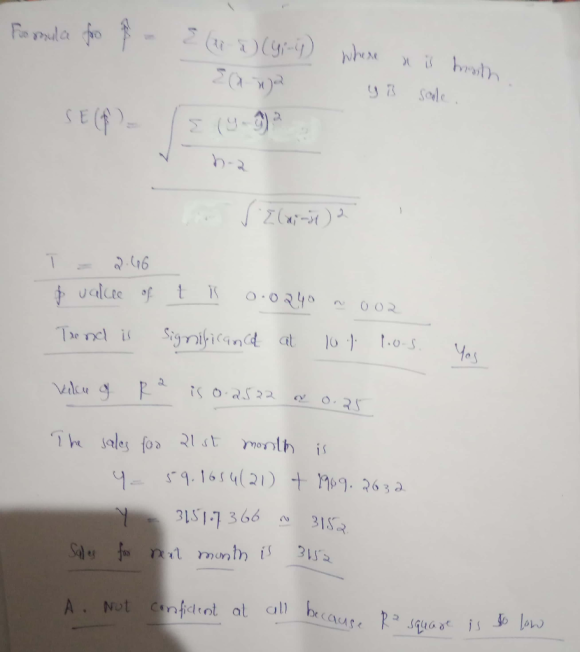 Formula for β̂ = Σ(xi-x̄)(yi-ȳ) / Σ(x-x̄)2 where x is month.
y is sale.
SE(β̂) = √(Σ(y-ŷ)2 / n-2) / √Σ(xi-x̄)2
T = 2.46
p value of t is 0.0240 ≈ 0.02
Trend is significant at 10% l.o.s. Yes
Value of R2 is 0.2522 ≈ 0.25
The sales for 21st month is
Y = 59.1654(21) + 1909.2632
Y = 3151.7366 ≈ 3152
Sales for next month is 3152
A. Not confident at all because R2 square is so low